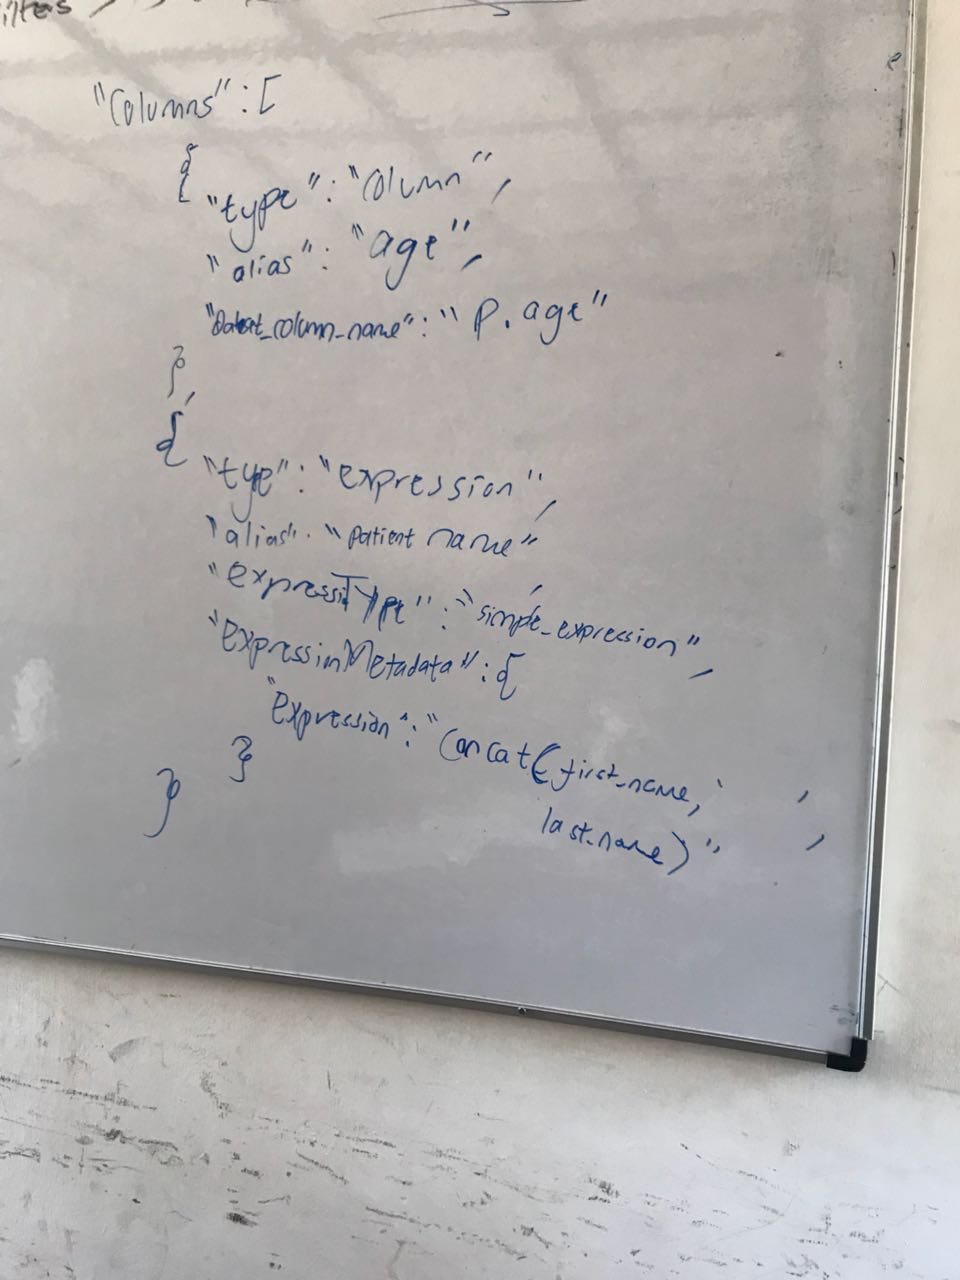 "Columns":[
{
"type":"column",
"alias":"age",
_column_name":"p.age"
},
{
"type":"expression",
"alias"."patient name"
,
"expressiType":"simple_expression",
"expressinMetadata":{
"expression":"Concat(first_name,
last_name)"
}
}